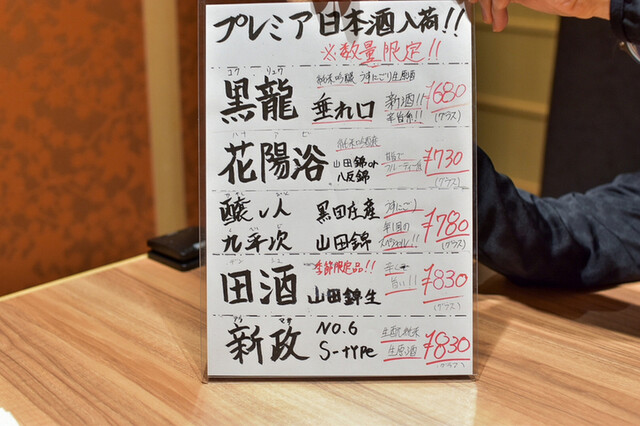 プレミア日本酒入荷!!
※数量限定!!
コク リュウ
黒龍 垂れ口
純米吟醸 うすにごり生原酒
新酒!!
¥680
(グラス)
花陽浴
山田錦or
八反錦
旨くて
フルーティー
¥730
(グラス)
醸し人
九平次
黒田庄産
山田錦
うすにごり
年1回の
スペシャル!!
¥780
(グラス)
田酒
季節限定品!!
山田錦生
旨い!!
¥830
(グラス)
新政
NO.6
S-TYPE
生酛純米
生原酒
¥830
(グラス)